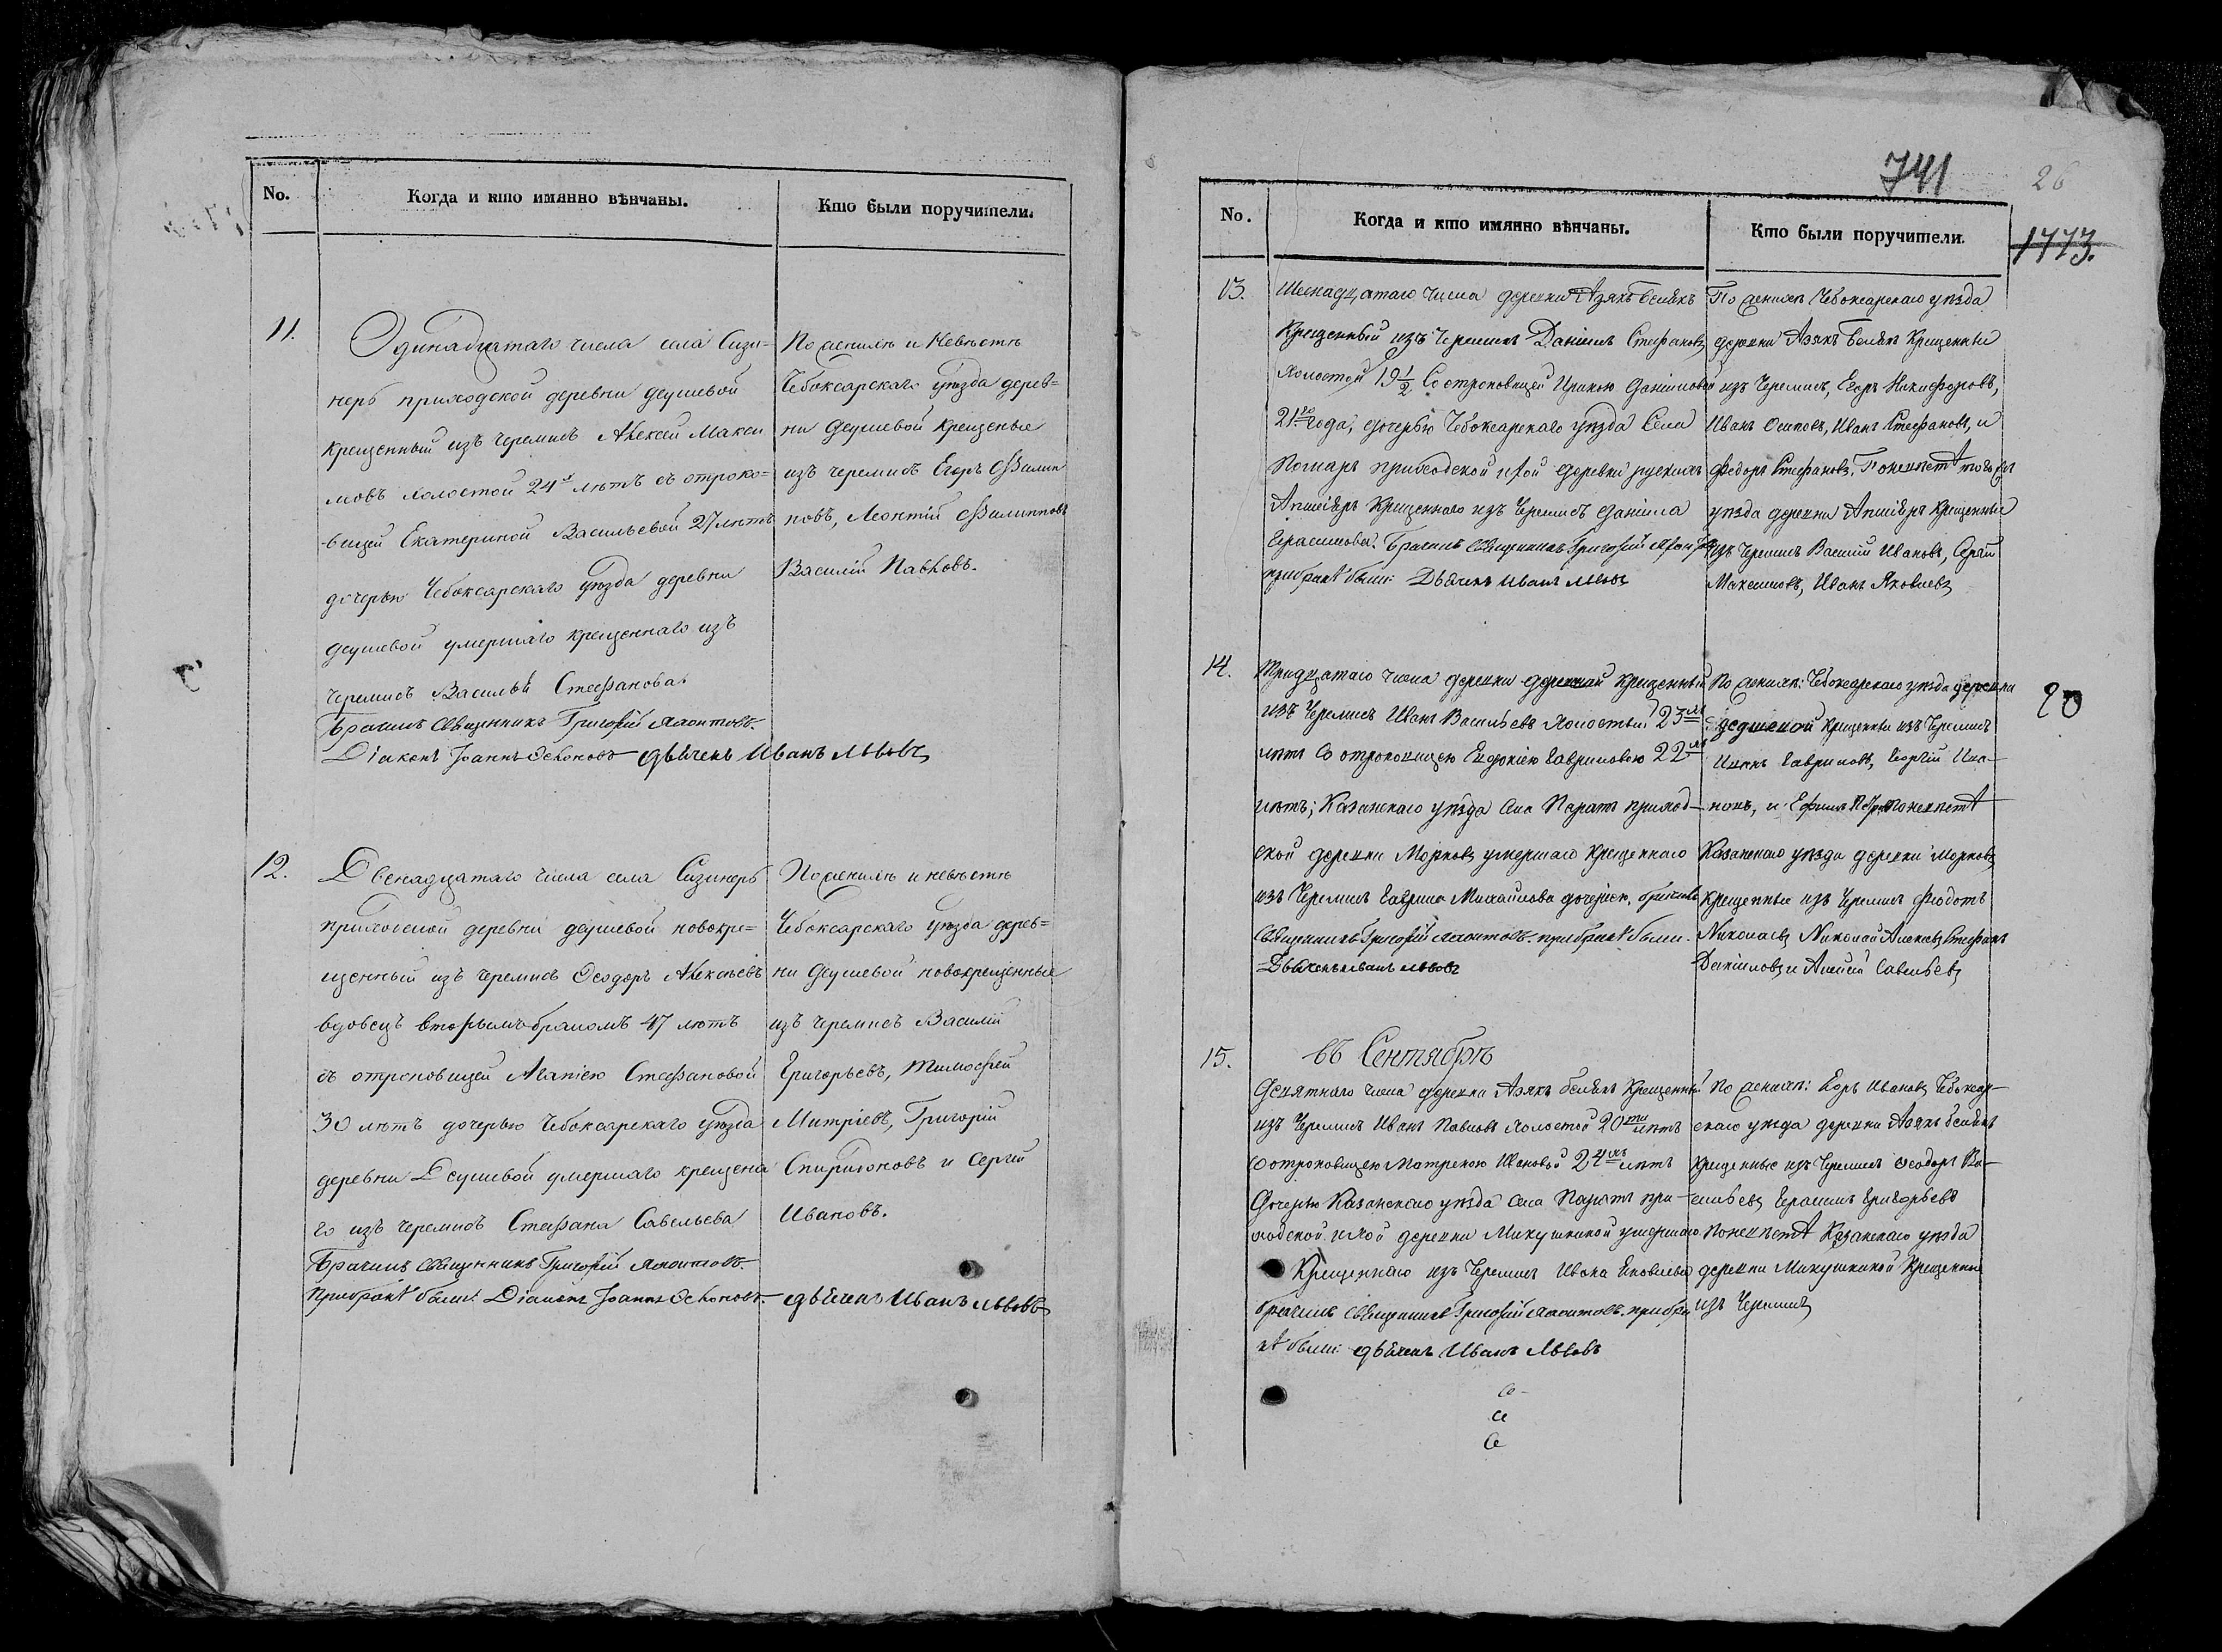 No.
Когда и кто имянно вѣнчаны.
Кто были поручители.
11.
Одинадцатаго числа села Сизи-
неръ приходской деревни Деушевой
крещенный изъ черемисъ Алексей Макси
мовъ холостой 24х лѣтъ съ отроко-
вицей Екатериной Васильевой 27 лѣтъ
дочерью Чебоксарскаго уѣзда деревни
деушевой умершаго крещеннаго изъ
черемисъ Василья Стефанова.
Бракилъ Священникъ Григорій
Діаконъ Іоаннъ дьячекъ Иванъ Львовъ
По женихѣ и невѣстѣ
Чебоксарскаго уѣзда дерев=
ни деушевой крещеные
изъ черемисъ Егоръ Филип
повъ, Леонтій Филипповъ
Василій Павловъ.
12.
Двенадцатаго числа села Сизинеръ
приходской деревни деушевой новокре=
щенный изъ черемисъ Ѳеодоръ Алексѣевъ
вдовецъ вторымъ бракомъ 47 лѣтъ
съ отроковицей Стефановой
30 лѣтъ дочерью Чебоксарскаго уѣзда
деревни Деушевой умершаго крещена
го изъ черемисъ Стефана Савельева
Священникъ Григорій
При бракѣ были: Діаконъ Іоаннъ дьячекъ Иванъ Львовъ
По женихѣ и невѣстѣ
Чебоксарскаго уѣзда дерев=
ни деушевой новокрещенные
изъ черемисъ Василій
Григорьевъ, Тимофей
Митріевъ, Григорій
Спиридоновъ и Сергей
Ивановъ.
741
26
1773.
No.
Когда и кто имянно вѣнчаны.
Кто были поручители.
13.
числа деревни Азякъ Белякъ
Крещенный изъ Черемисъ Даніилъ Стефановъ
холостой 19 1/2 Со отроковицей Ириною Даніиловой
21го года, дочерью Чебоксарскаго уѣзда Села
приходской деревни русскихъ
Крещеннаго изъ Черемисъ Даніила
Герасимова. Священникъ Григорій
при бракѣ были: Дьячекъ Иванъ Львовъ
По женихѣ Чебоксарскаго уѣзда
деревни Азякъ Белякъ Крещенные
изъ Черемисъ, Егоръ Никифоровъ,
Иванъ Осиповъ, Иванъ Стефановъ, и
Федоръ Стефановъ. По невѣстѣ
уѣзда деревни Крещенные
изъ Черемисъ Василій Ивановъ, Сергѣй
Максимовъ, Иванъ Яковлевъ
14.
Тридцатаго числа деревни Крещенный
изъ Черемисъ Иванъ Васильевъ холостый 23
лѣтъ Со отроковицею Евдокіею Гавриловою 22
лѣтъ; Казанскаго уѣзда Села Паратъ приход-
ской деревни Морковъ умершаго крещеннаго
изъ Черемисъ Гаврила Михайлова дочерью.
Священникъ Григорій при бракѣ были.
Дьячекъ Иванъ Львовъ
По женихѣ: Чебоксарскаго уѣзда деревни
Крещенные изъ Черемисъ
Иванъ Гавриловъ, Георгій Ива-
новъ, и Ефимъ по невѣстѣ
Казанскаго уѣзда деревни Морковъ
крещенные изъ Черемисъ Федотъ
Николаевъ Николай Алексеевъ Стефанъ
Даниловъ и Алексей Савельевъ
20
15.
въ Сентябрѣ
Девятнаго числа деревни Азякъ белякъ Крещенный
изъ Черемисъ Иванъ Павловъ холостой 20ти лѣтъ
Со отроковицею Матреною Ивановой 24хъ лѣтъ
Дочерью Казанскаго уѣзда Села Паратъ при-
ходской деревни Микушкиной умершаго
Крещеннаго изъ Черемисъ Ивана Яковлева
Священникъ Григорій при бра
кѣ были: дьячекъ Иванъ Львовъ
По женихѣ: Егоръ Ивановъ Чебокса-
рскаго уѣзда деревни Азякъ белякъ
крещенные изъ Черемисъ Ѳеодоръ Ва-
сильевъ Герасимъ Григорьевъ
По невѣстѣ Казанскаго уѣзда
деревни Микушкиной Крещенные
изъ Черемисъ